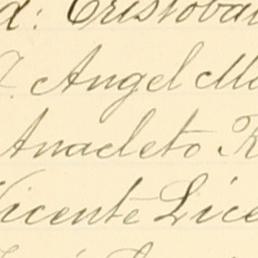 d: Cristobal
J. Angel Ma
Anacleto R
Vicente Lice